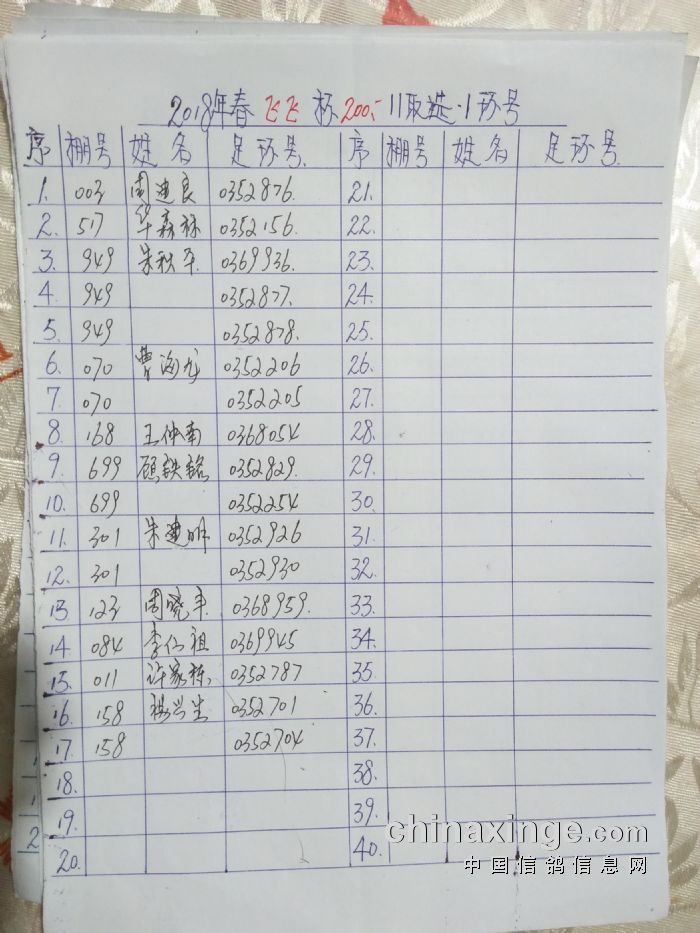 2018年春飞飞杯200:-11取选·1环号
序 棚号 姓名 足环号 序 棚号 姓名 足环号
1. 003 周建良 0352876. 21.
2. 517 华森林 0352156. 22.
3. 949 朱秋平 0369936. 23.
4. 949 0352877. 24.
5. 949 0352878. 25.
6. 070 曹海龙 0352206 26.
7. 070 0352205 27.
8. 168 王仲南 0368054 28.
9. 699 顾铁铭 0352829. 29.
10. 699 0352254 30.
11. 301 朱建明 0352926 31.
12. 301 0352930 32.
13 123 周晓丰 0368959. 33.
14 084 李仁祖 0369945 34.
15. 011 许家栋 0352787 35.
16. 158 杨兴生 0352701 36.
17. 158 0352704 37.
18. 38.
19. 39.
20. 40.
chinaxinge.com
中国信鸽信息网